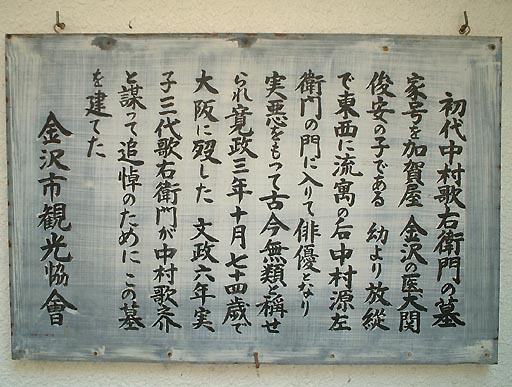 初代中村歌右衛門の墓
家号を加賀屋 金沢の医大関
俊安の子である 幼より放縦
で東西に流寓の后中村源左
衛門の門に入りて俳優となり
実悪をもって古今無類と称せ
られ寛政三年十月七十四歳で
大阪に歿した 文政六年実
子三代歌右衛門が中村歌之介
と謀って追悼のために この墓
を建てた
金沢市観光協會